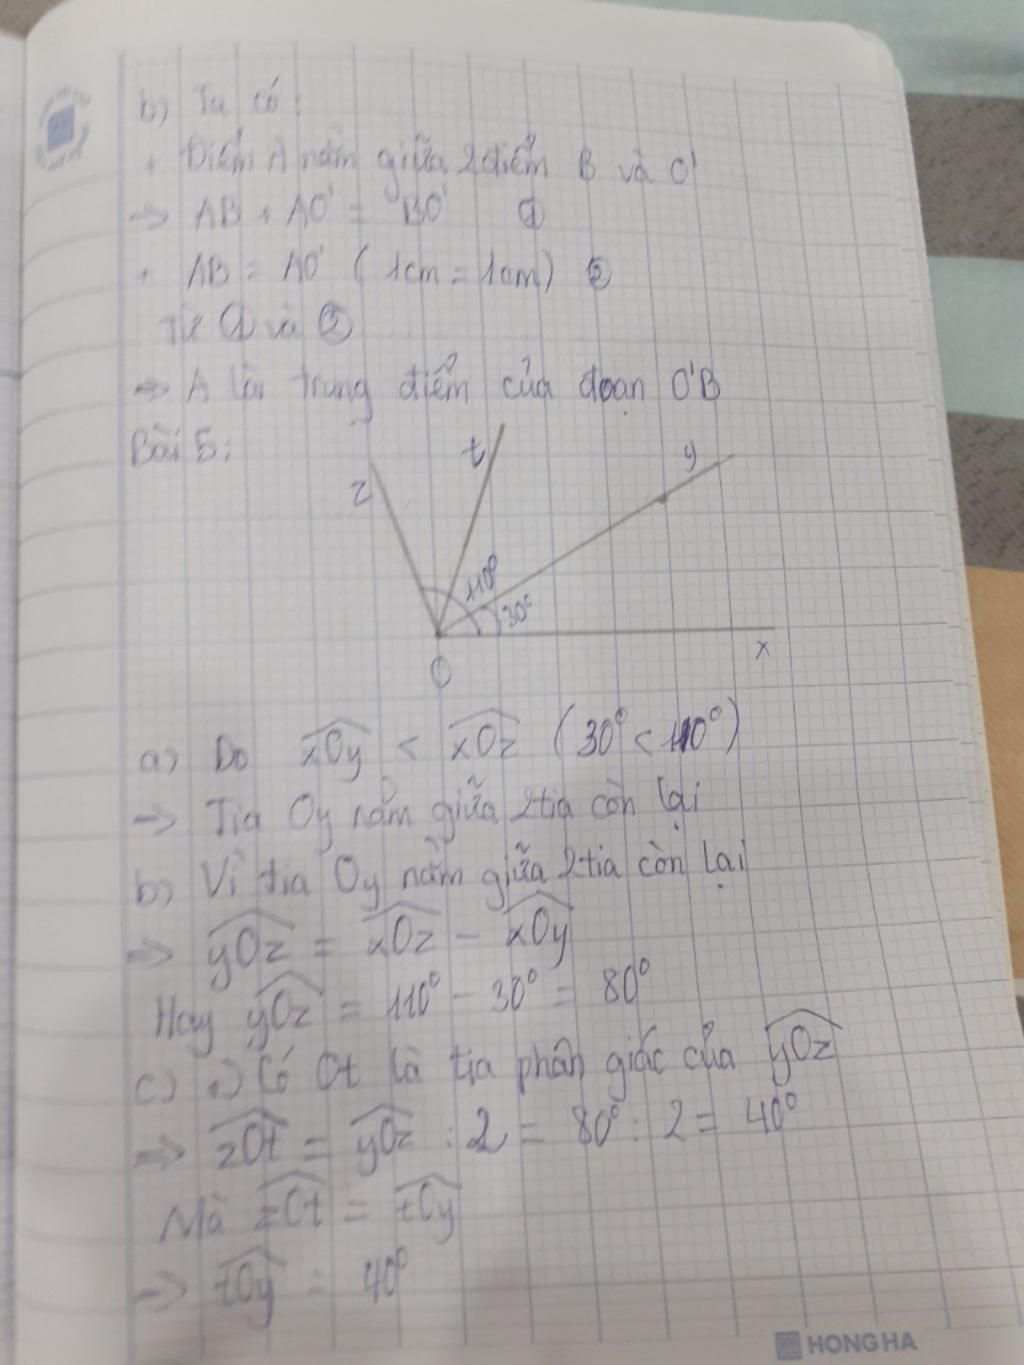 b) Ta có:
+ Điểm A nằm giữa 2 điểm B và O'
→ AB + AO' = BO' ①
+ AB = AO' (1cm = 1cm) ②
Từ ① và ②
→ A là trung điểm của đoạn O'B
Bài 5:
z
t
y
110°
30°
O
x
a) Do xOy < xOz (30° < 110°)
→ Tia Oy nằm giữa 2 tia còn lại
b) Vì tia Oy nằm giữa 2 tia còn lại
→ yOz = xOz - xOy
Hay yOz = 110° - 30° = 80°
c) .) Có Ot là tia phân giác của yOz
→ zOt = yOz : 2 = 80° : 2 = 40°
Mà zOt = tOy
→ tOy = 40°
HONG HA